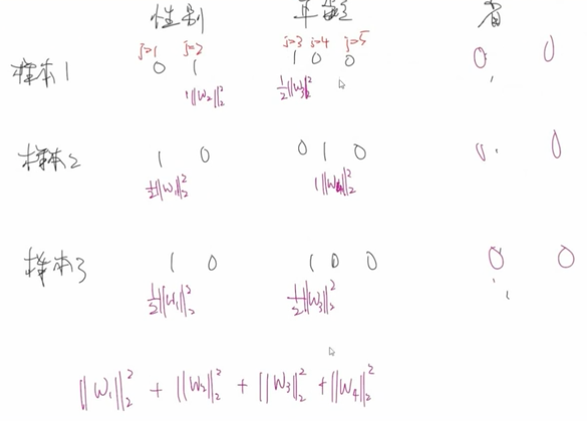 性别 年龄 省
j=1 j=2 j=3 j=4 j=5
样本1 0 1 1 0 0 0 0
1||W₂||₂² ½||W₃||₂²
样本2 1 0 0 1 0 0 0
½||W₁||₂² 1||W₄||₂²
样本3 1 0 1 0 0 0 0
½||W₁||₂² ½||W₃||₂²
||W₁||₂² + ||W₂||₂² + ||W₃||₂² + ||W₄||₂²